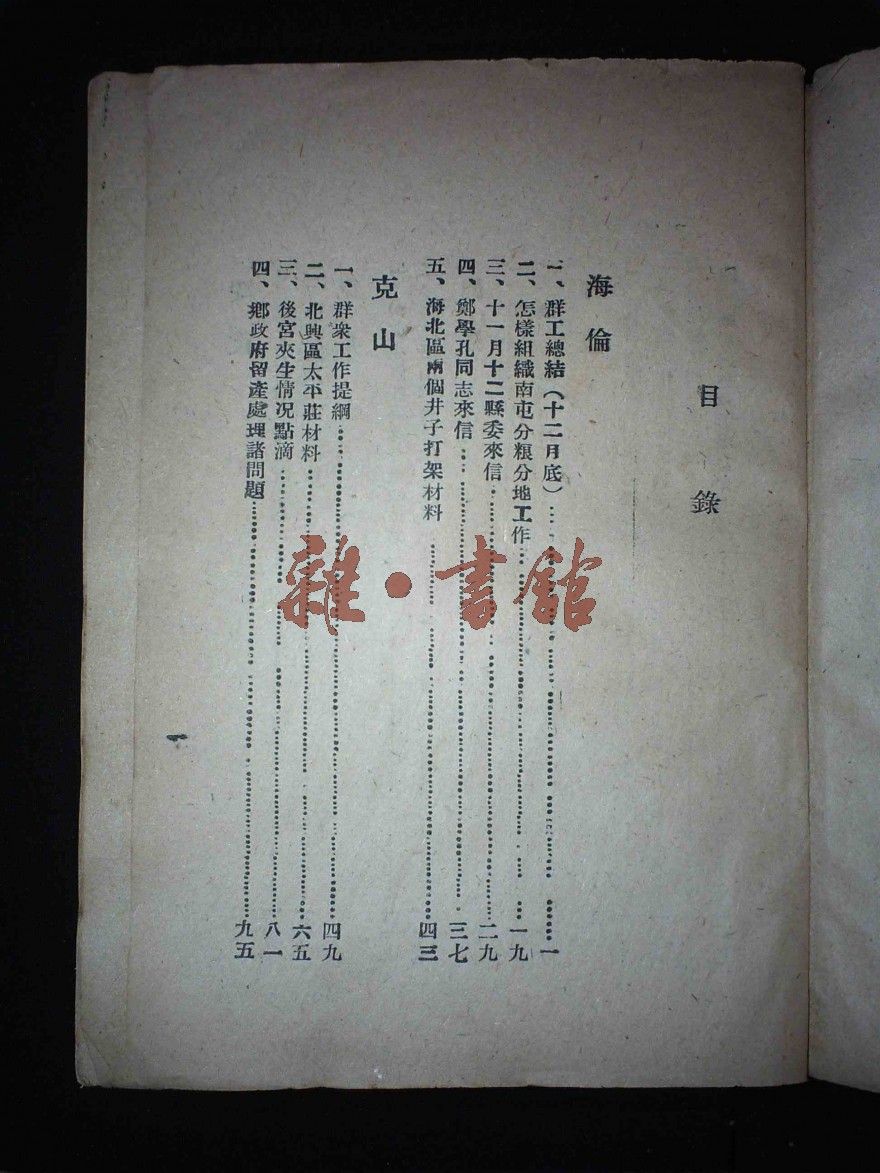 目錄
海倫
一、群工總結（十二月底）……一
二、怎樣組織南屯分粮分地工作……一九
三、十一月十二縣委來信……二九
四、鄭學孔同志來信……三七
五、海北區兩個井子打架材料……四三
克山
一、群衆工作提綱……四九
二、北興區太平莊材料……六五
三、後宮夾生情况點滴……八一
四、鄕政府留產處理諸問題……九五
雜·書館